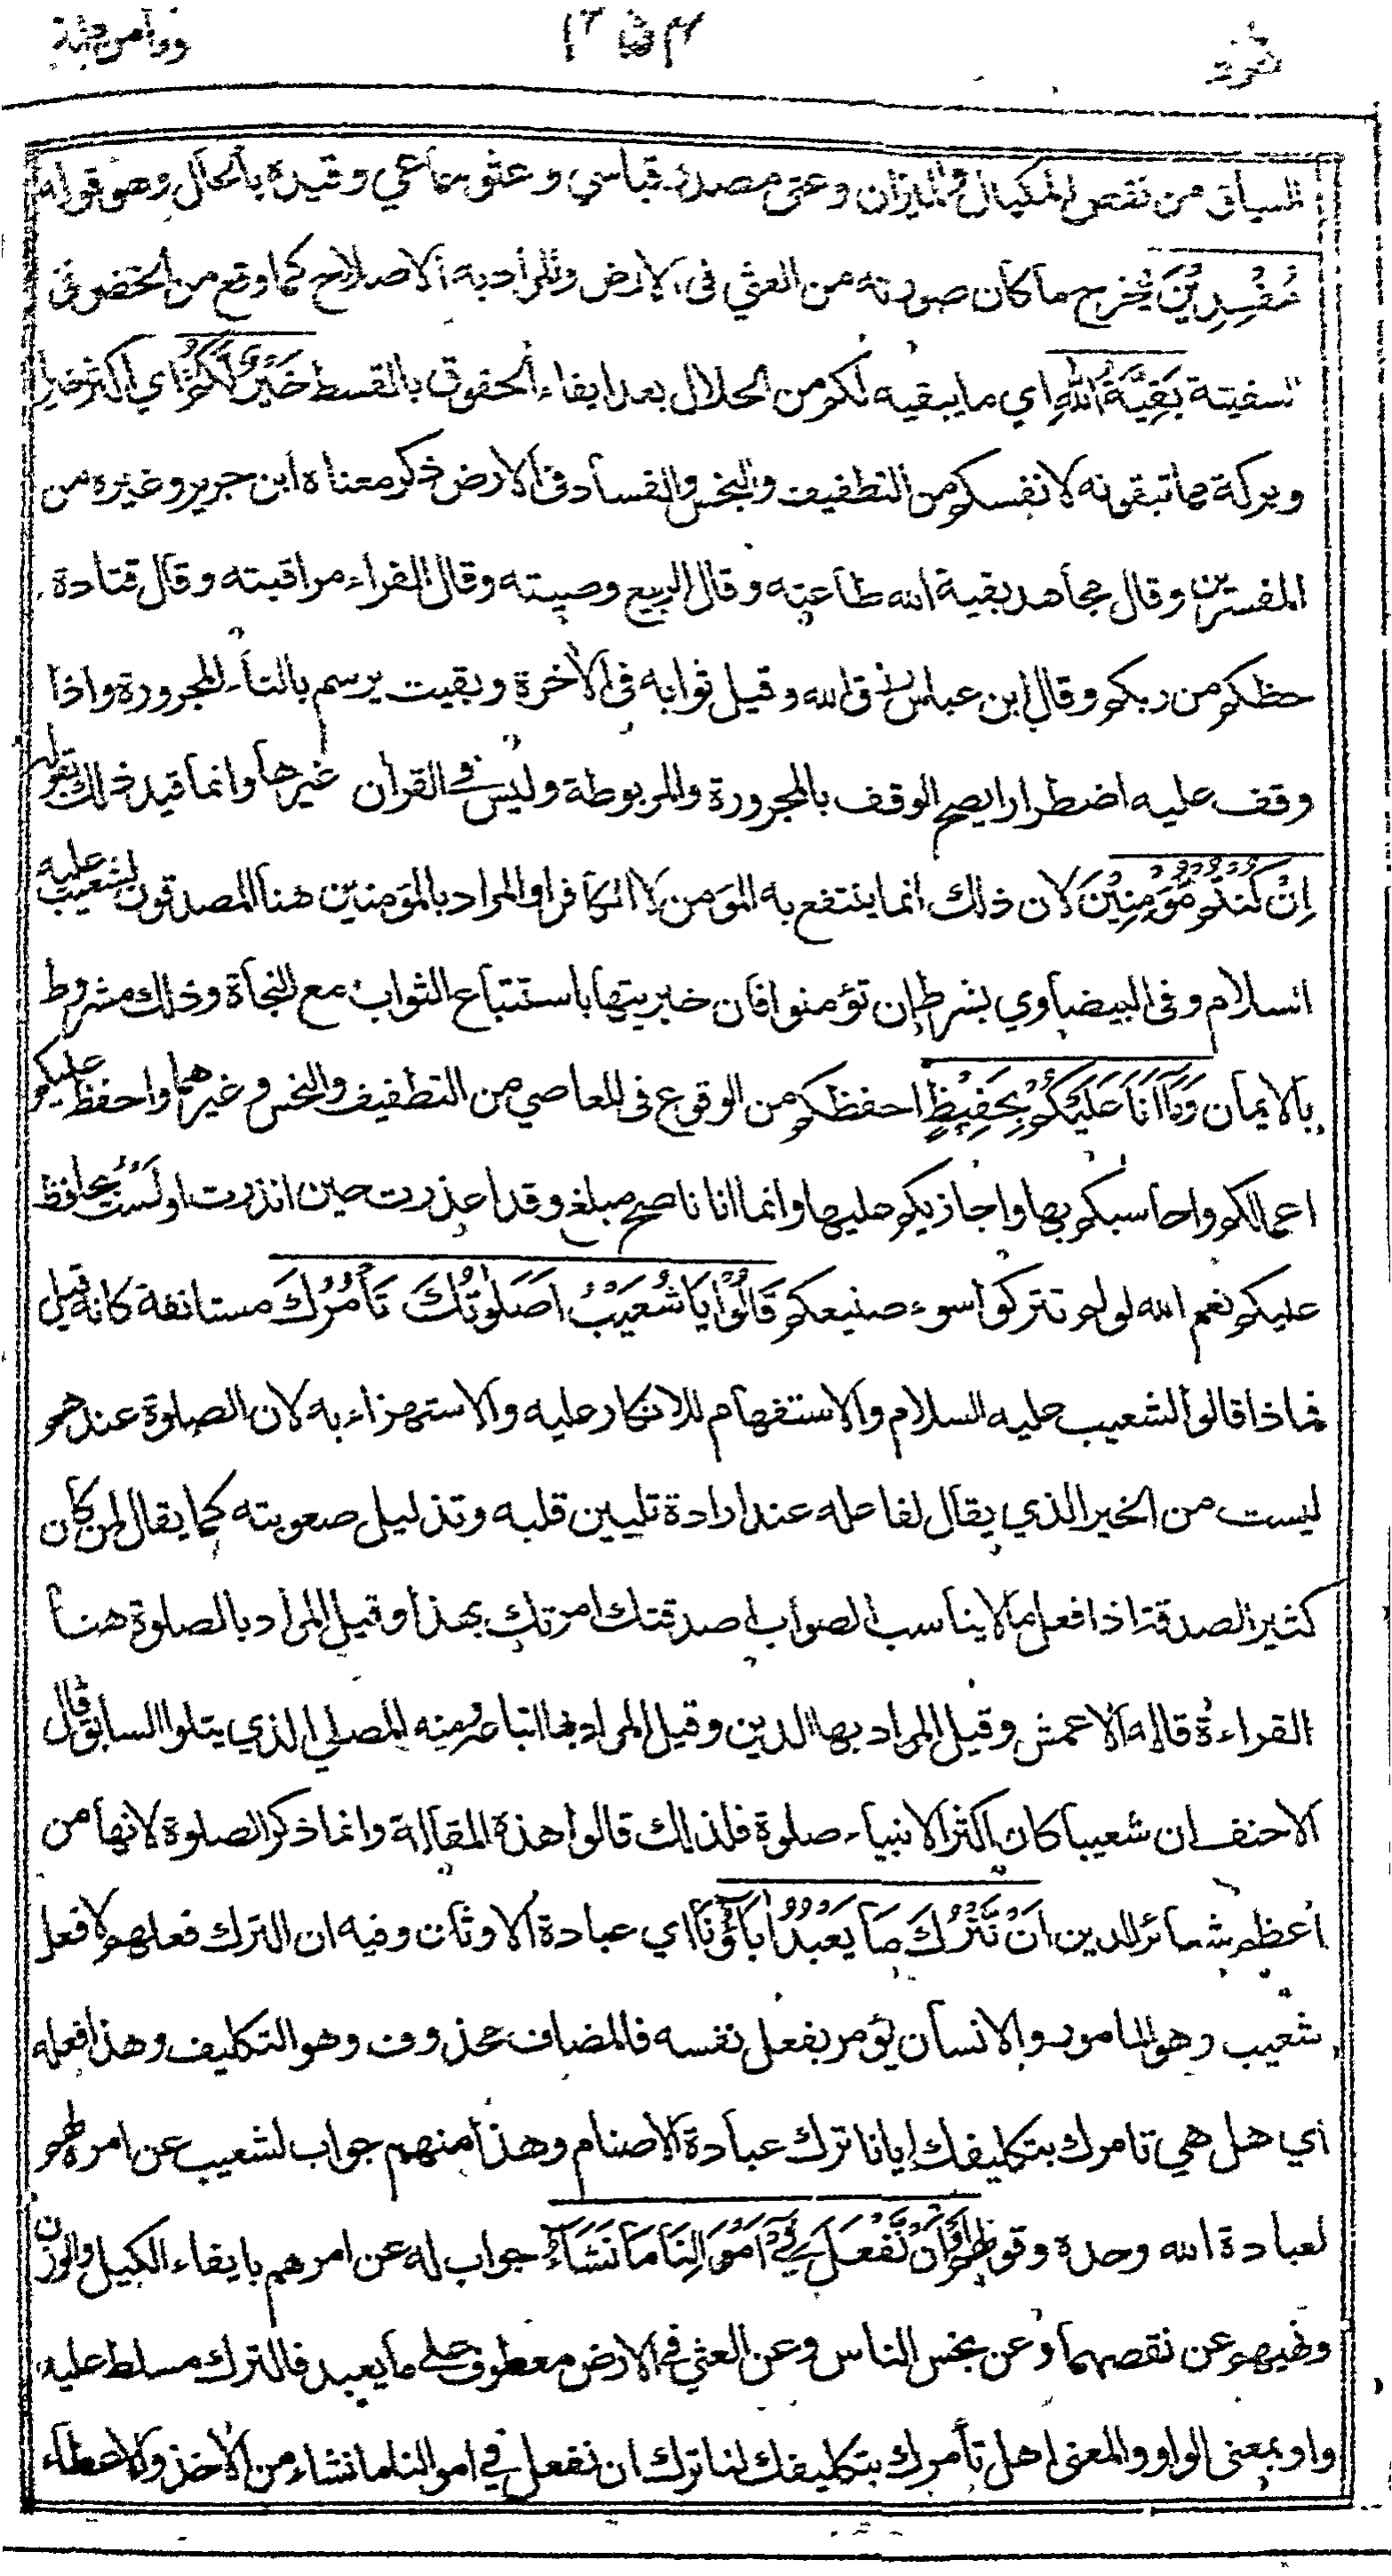 وما من دابة ٣٥٤ هود
السياق من نقص المكيال والميزان وعثى مصدره قياسي وعثو سماعي وقيده بالحال وهو قوله
مُفْسِدِيْنَ ليخرج ما كان صورته من العثي في الارض والمراد به الاصلاح كما وقع من الخضر في
السفينة بَقِيَّةُ اللّٰهِ اي ما يبقيه لكم من الحلال بعد ايفاء الحقوق بالقسط خَيْرٌ لَّكُمْ اي اكثر خيرا
وبركة مما تبقونه لانفسكم من التطفيف والبخس والفساد في الارض ذكر معناه ابن جرير وغيره من
المفسرين وقال مجاهد بقية الله طاعته وقال الربيع وصيته وقال الفراء مراقبته وقال قتادة
حظكم من ربكم وقال ابن عباس رزق الله وقيل ثوابه في الاخرة وبقيت يرسم بالتاء المجرورة واذا
وقف عليه اضطرارا يصح الوقف بالمجرورة والمربوطة وليس في القران غيرها وانما قيد ذلك بقوله
اِنْ كُنْتُمْ مُّؤْمِنِيْنَ لان ذلك انما ينتفع به المؤمن لا الكافر او المراد بالمؤمنين هنا المصدقون لشعيب عليه
السلام وفي البيضاوي بشرط ان تؤمنوا فان خيريتها باستتباع الثواب مع النجاة وذلك مشروط
بالايمان وَمَآ اَنَا عَلَيْكُمْ بِحَفِيْظٍ احفظكم من الوقوع في المعاصي من التطفيف والبخس وغيرهما واحفظ عليكم
اعمالكم واحاسبكم بها واجازيكم عليها وانما انا ناصح مبلغ وقد اعذرت حين انذرت او لست بحافظ
عليكم نعم الله لو لم تتركوا سوء صنيعكم قَالُوْا يَا شُعَيْبُ اَصَلٰوتُكَ تَأْمُرُكَ مستانفة كانه قيل
فماذا قالوا لشعيب عليه السلام والاستفهام للانكار عليه والاستهزاء به لان الصلوة عندهم
ليست من الخير الذي يقال لفاعله عند ارادة تليين قلبه وتذليل صعوبته كما يقال لمن كان
كثير الصدقة اذا فعل ما لا يناسب الصواب اصدقتك امرتك بهذا وقيل المراد بالصلوة هنا
القراءة قاله الاعمش وقيل المراد بها الدين وقيل المراد بها اتباعه ومنه المصلي الذي يتلوا السابق قال
الاحنف ان شعيبا كان اكثر الانبياء صلوة فلذلك قالوا هذه المقالة وانما ذكر الصلوة لانها من
اعظم شعائر الدين اَنْ نَّتْرُكَ مَا يَعْبُدُ اٰبَآؤُنَا اي عبادة الاوثان وفيه ان الترك فعلهم لا فعل
شعيب وهو المامور والانسان يؤمر بفعل نفسه فالمضاف محذوف وهو التكليف وهذا فعله
اي هل هي تامرك بتكليفك ايانا ترك عبادة الاصنام وهذا منهم جواب لشعيب عن امره لهم
لعبادة الله وحده وقولهم اَوْ اَنْ نَّفْعَلَ فِيْ اَمْوَالِنَا مَا نَشَآءُ جواب له عن امرهم بايفاء الكيل والوزن
ونهيهم عن نقصهما وعن بخس الناس وعن العثي في الارض معطوف على ما يعبد فالترك مسلط عليه
واو بمعنى الواو والمعنى هل تأمرك بتكليفك لنا ترك ان نفعل في اموالنا ما نشاء من الاخذ والاعطاء